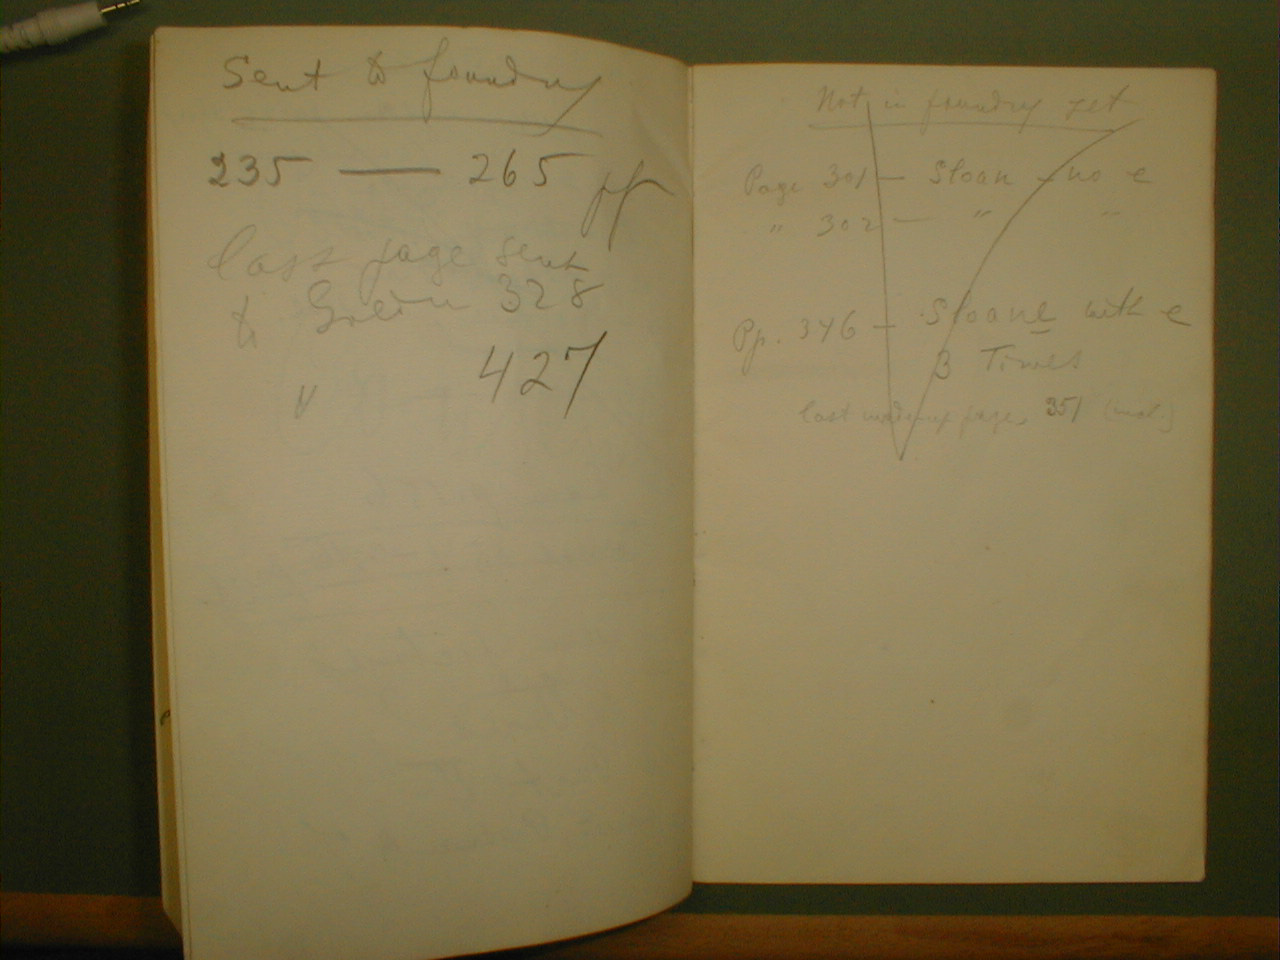 Sent to foundry
235 — 265 pp
last page sent
to Golden 328
" 427
Not in foundry yet
Page 301 — Sloan — no e
" 302 — " "
Pp. 346 — Sloane with e
3 Times
last made-up page, 351